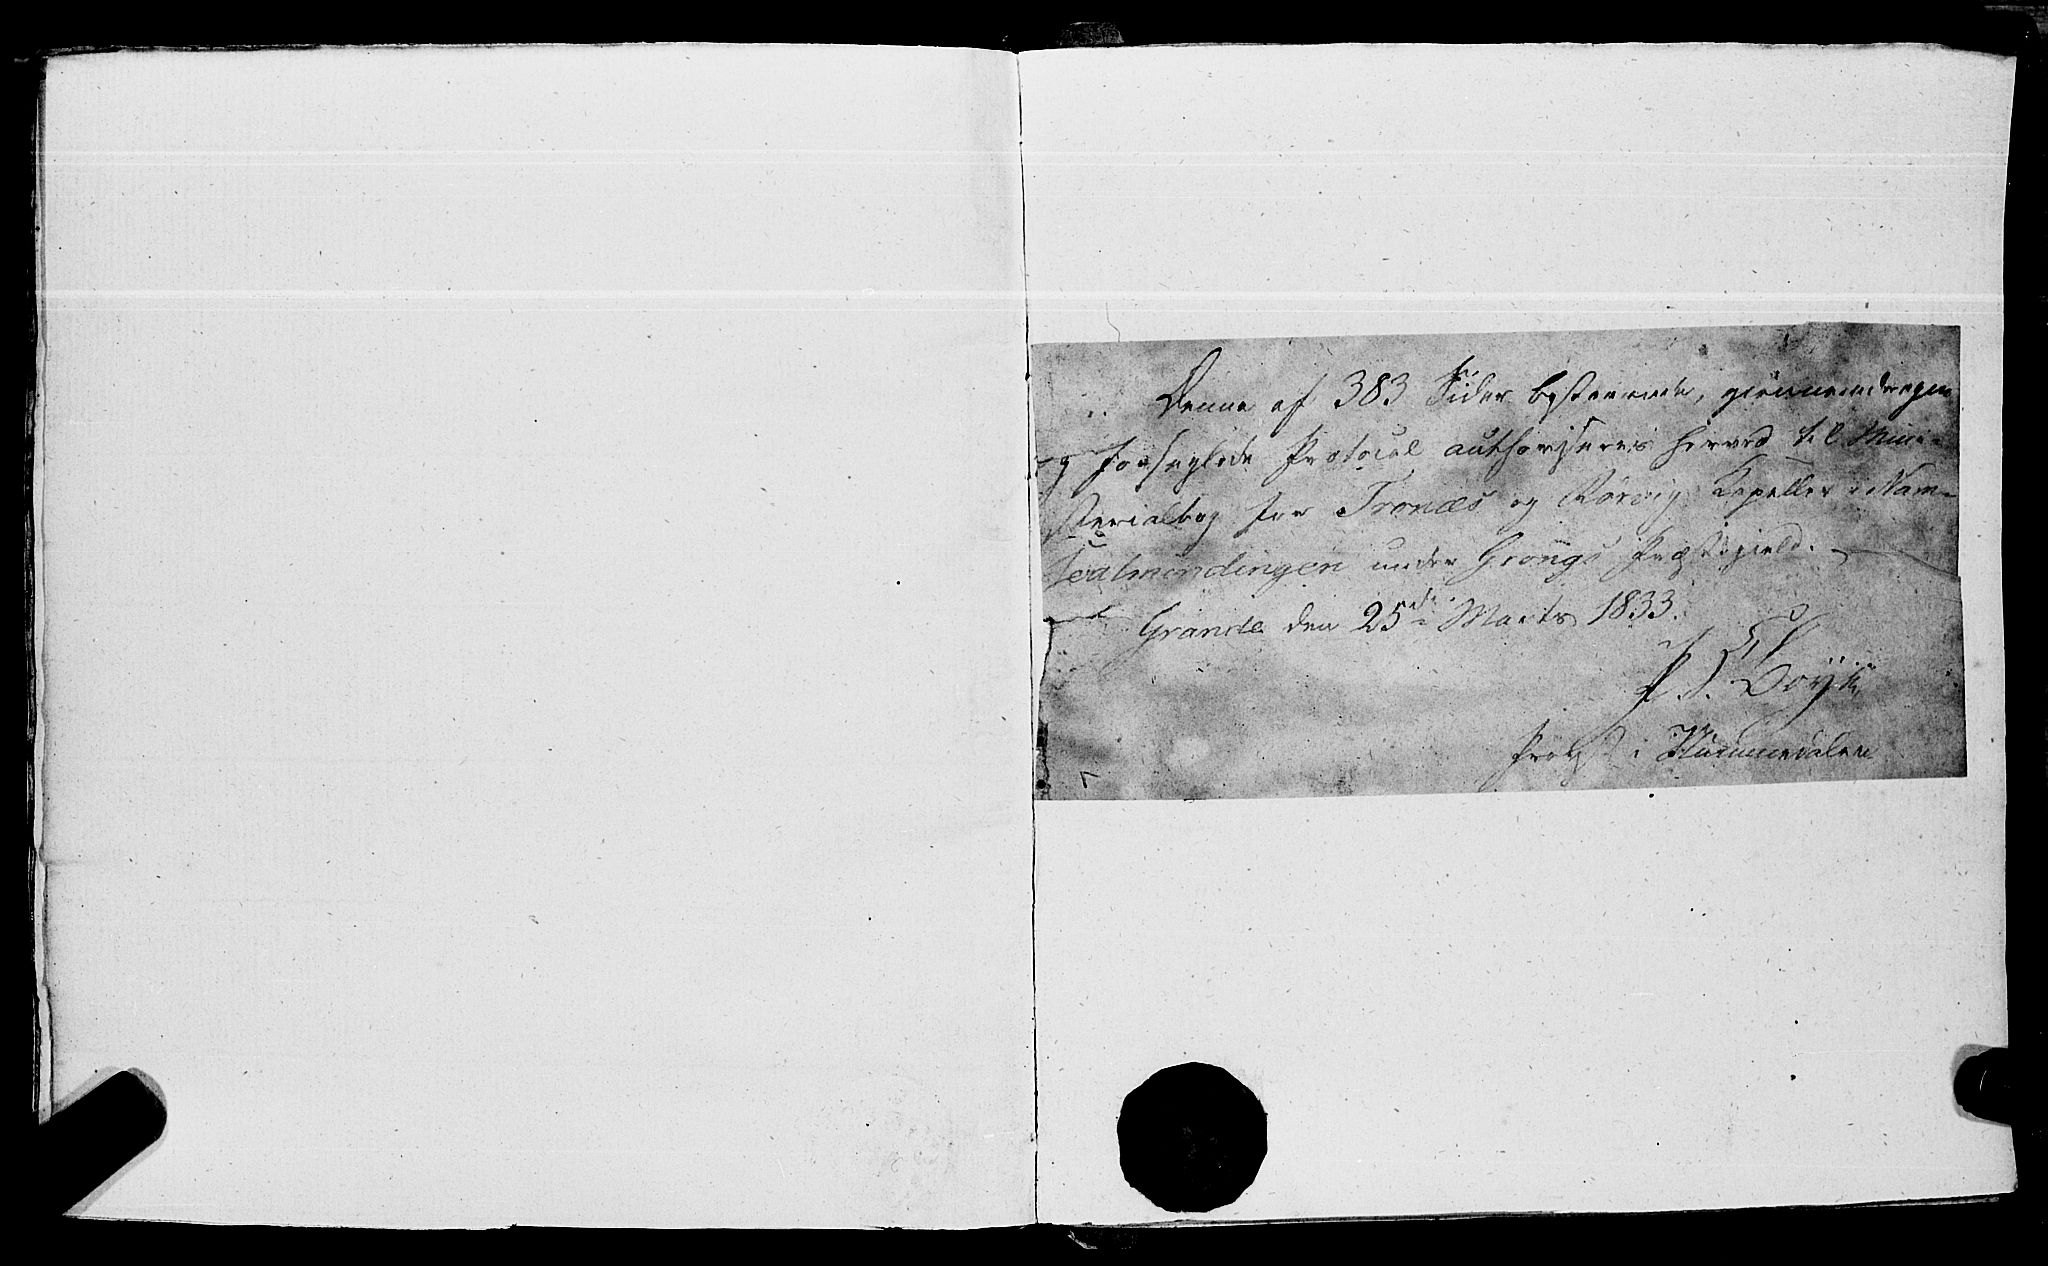 Denne af 383 Sider bestaaende, giennemdragen
og forseglede Protocol authoriseres herved til Mini-
sterialbog for Tronæs og Rörvig Kapeller i Nam-
sealmindingen under Grongs Præstegield.
Grande den 25de Marts 1833.
Provst i Nummedalen